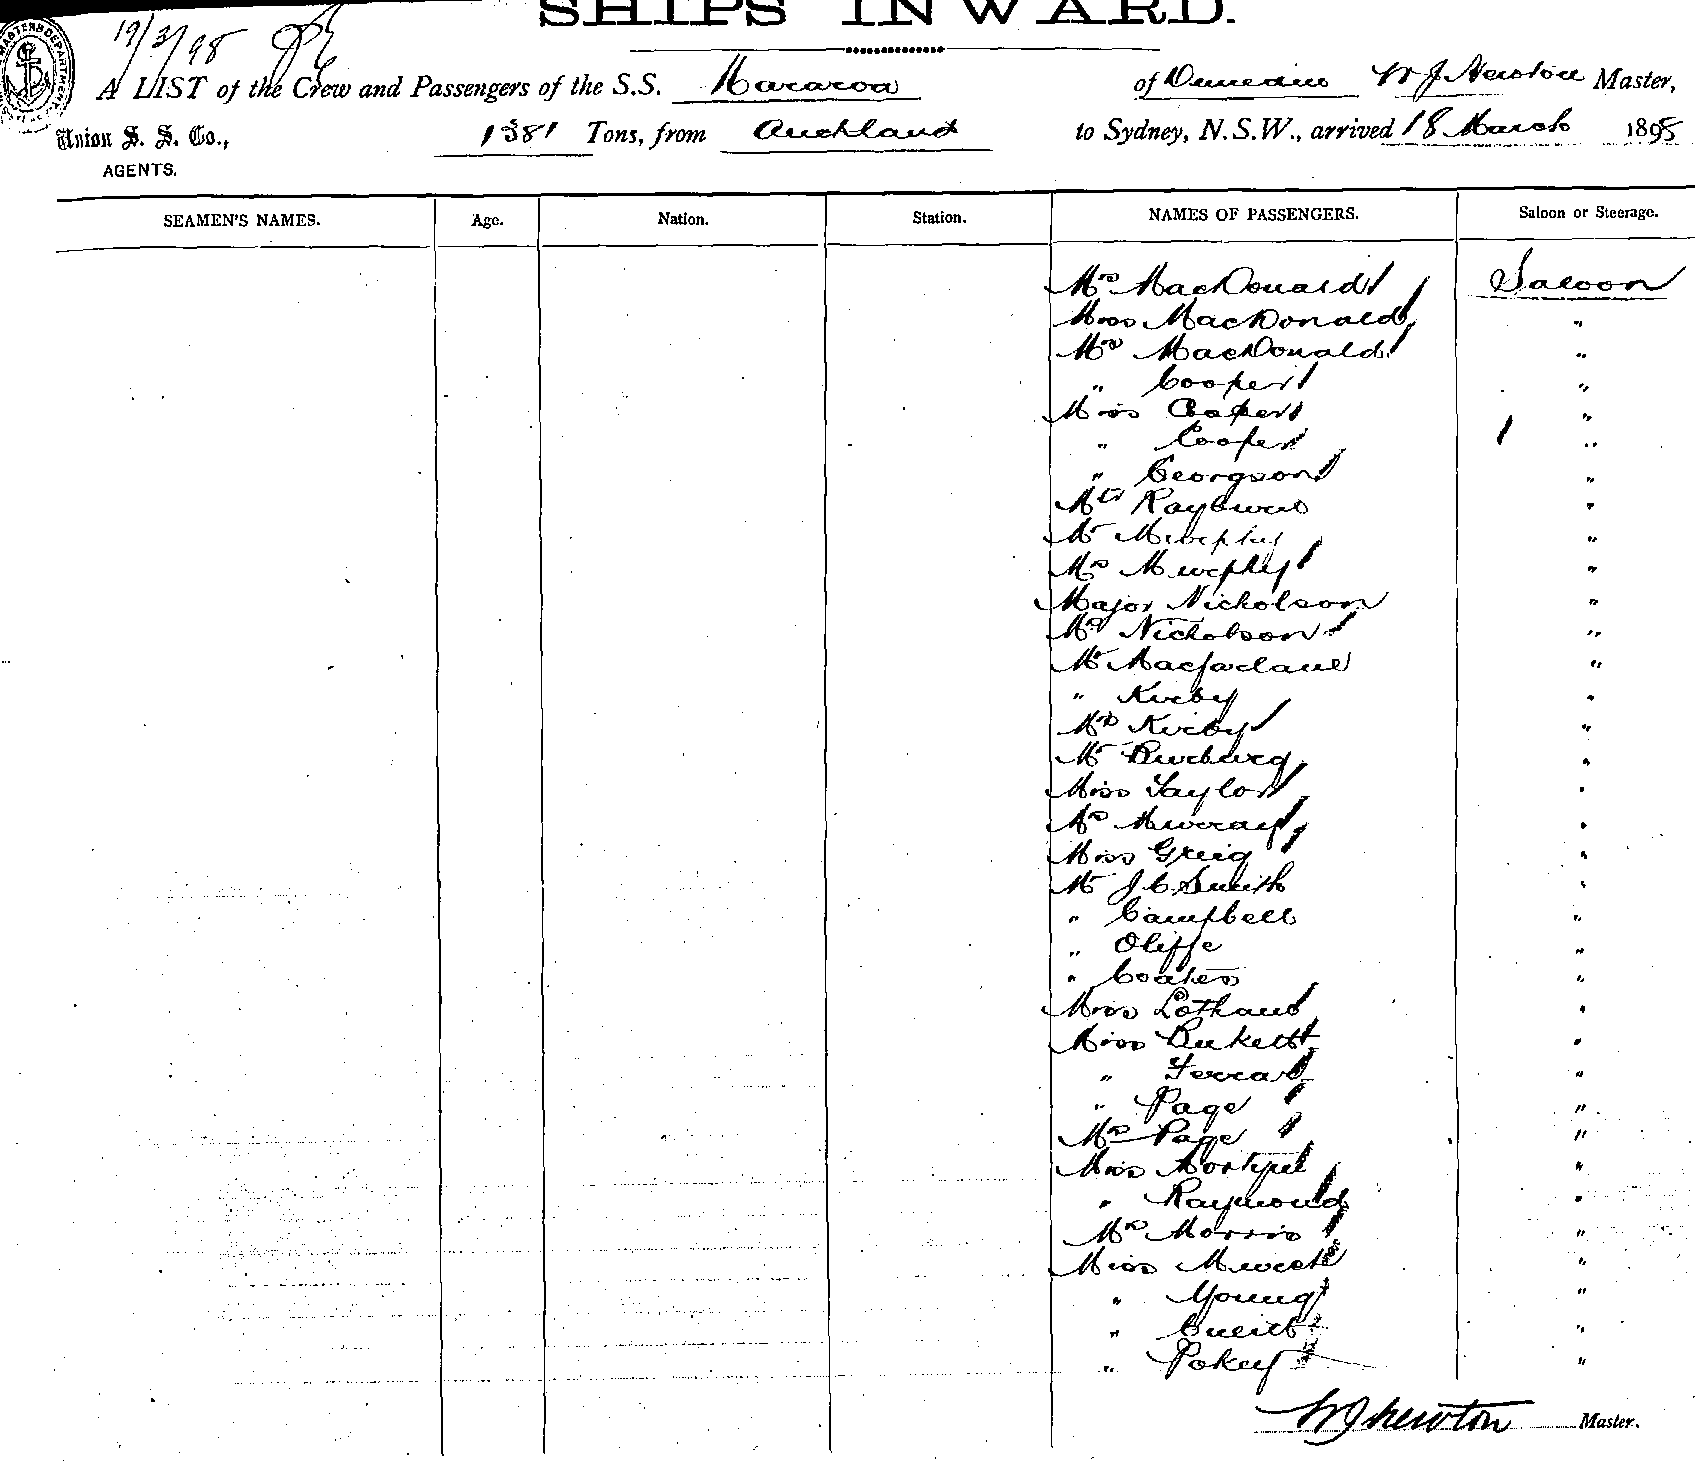 SHIPS INWARD.
19/3/98
A LIST of the Crew and Passengers of the S.S. Mararoa of Dunedin W J Newton Master,
Union S. S. Co., 1381 Tons, from Auckland to Sydney, N.S.W., arrived 18 March 1898
AGENTS.
SEAMEN'S NAMES. Age. Nation. Station. NAMES OF PASSENGERS. Saloon or Steerage.
Mrs MacDonald Saloon
Miss MacDonald "
Mrs MacDonald "
" Cooper "
Miss Cooper "
" Cooper "
" Georgson "
"
Mr Murphy "
Mrs Murphy "
Major Nicholson "
Mrs Nicholson "
Mr Macfarlane "
" Kirby "
Mrs Kirby "
Mr "
Miss Taylor "
Mrs Murray "
Miss Greig "
Mr J C Smith "
" Campbell "
" Oliffe "
" Coates "
Miss "
Miss "
" "
" Page "
Mrs Page "
Miss "
" Raymond "
Mrs Morris "
Miss "
" Young "
" "
" "
W J Newton Master.